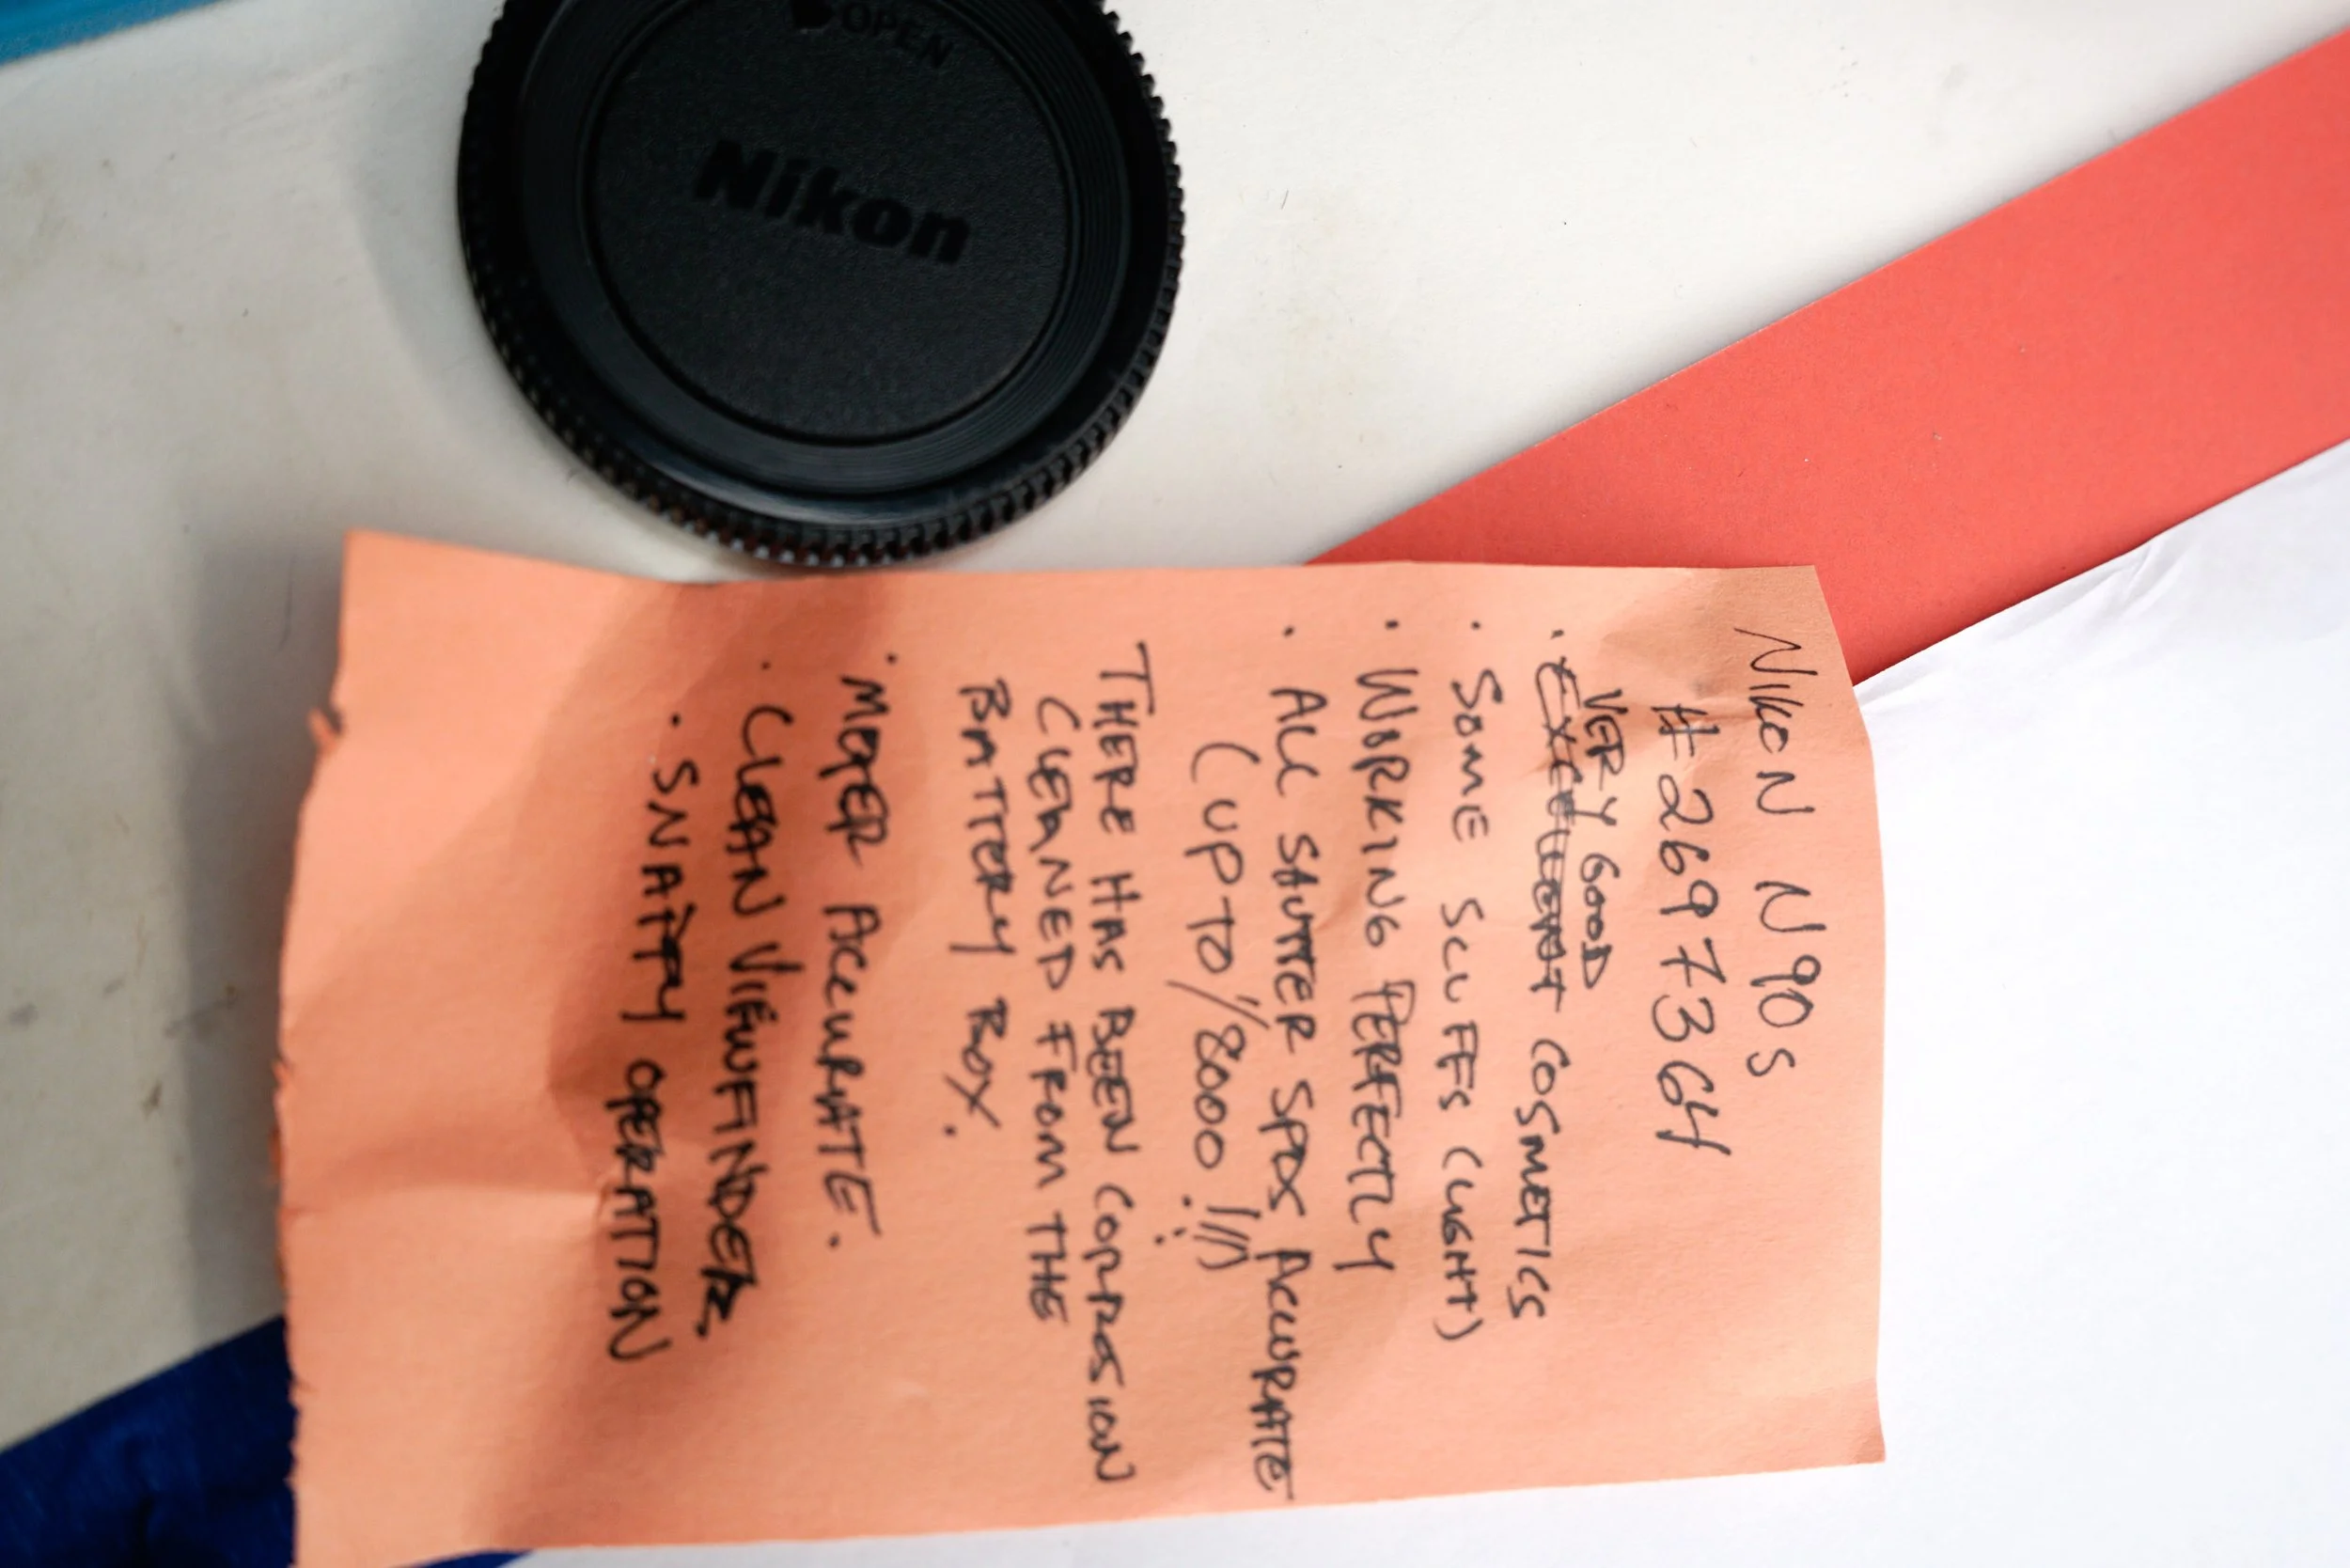 OPEN
Nikon
Nikon N90s
#2697364
VERY GOOD
· EXCELLENT COSMETICS
· SOME SCUFFS (LIGHT)
· WORKING PERFECTLY
· ALL SHUTTER SPDS ACCURATE
(UP TO 1/8000!!!)
THERE HAS BEEN COPRRSION
CLEANED FROM THE
BATTERY BOX.
· METER ACCURATE.
· CLEAN VIEWFINDER
· SNAPPY OPERATION